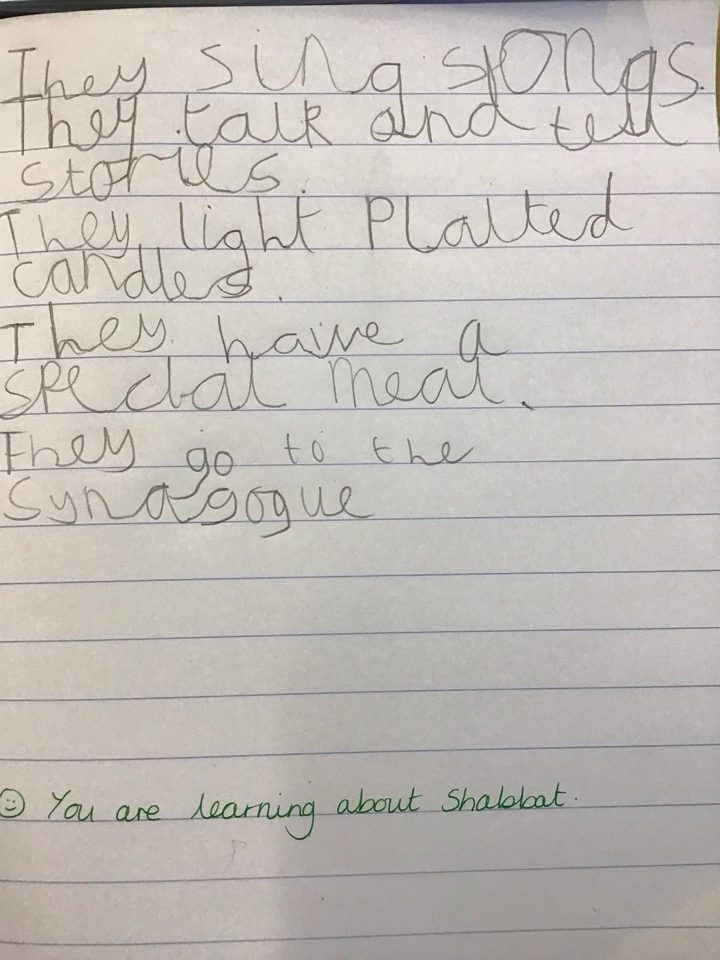 They sing songs.
They talk and tell
stories.
They light Plaited
candles.
They have a
special meal.
They go to the
Synagogue
☺ You are learning about Shabbat.